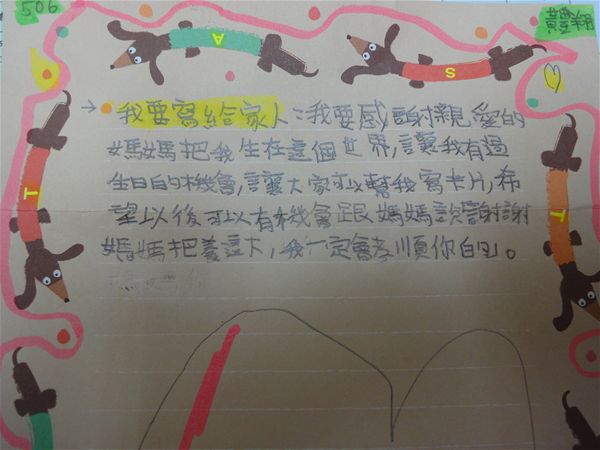 506
A
S
我要寫給家人:我要感謝親愛的
媽媽把我生在這個世界,讓我有過
生日的機會,讓大家可以幫我寫卡片,希
望以後可以有機會跟媽媽說謝謝
媽媽把養這大,我一定會孝順你的。
T
T
I